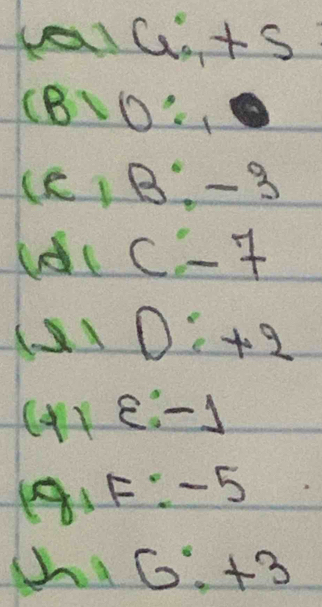 (a) G:, +5
(B) O:,
(c) B: -3
(d) C: -7
(e) D: +2
(f) E: -1
(g) F: -5
(h) G: +3